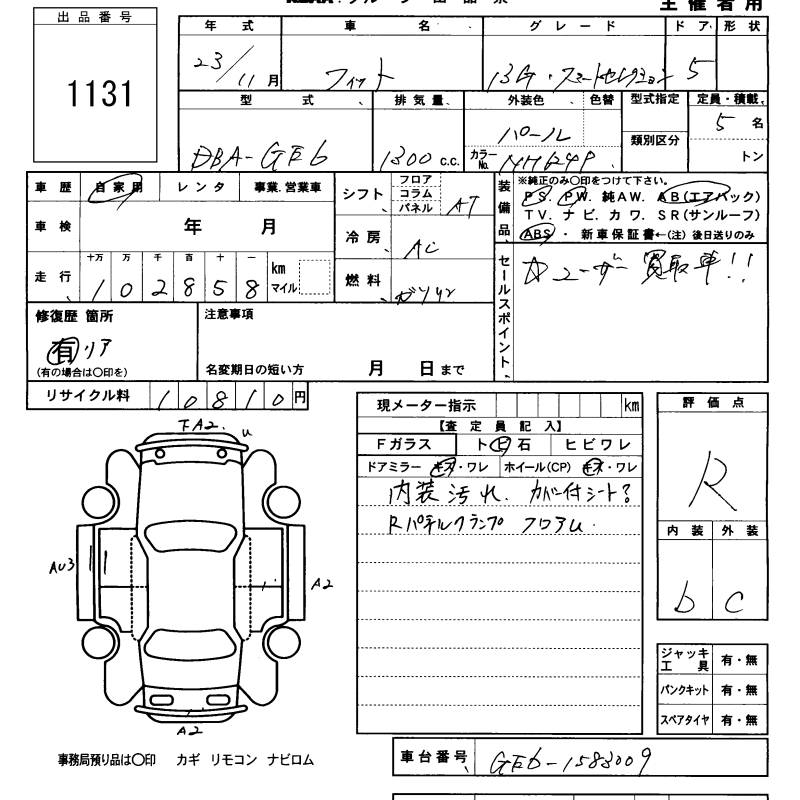 出品番号
1131
主催者用
年式 車名 グレード ドア 形状
23/11月 フィット 13G・スマートセレクション 5
型式 排気量 外装色 色替 型式指定 定員・積載
類別区分
DBA-GE6 1300 c.c. パール カラーNo. NH624P 5名
トン
車歴 自家用 レンタ 事業.営業車
車検 年 月
走行 十万 万 千 百 十 一 km マイル
102858
シフト フロア コラム パネル AT
冷房 AC
燃料 ガソリン
装備品
※純正のみ〇印をつけて下さい。
PS. PW. 純AW. AB(エアバック)
TV. ナビ. カワ. SR(サンルーフ)
ABS ・ 新車保証書←(注) 後日送りのみ
セールスポイント
☆ユーザー買取車!!
修復歴 箇所
有 リア
(有の場合は〇印を)
注意事項
名変期日の短い方 月 日まで
リサイクル料 10810円
現メーター指示 km
【査定員記入】
Fガラス ト ヒ 石 ヒビワレ
ドアミラー キズ・ワレ ホイール(CP) キズ・ワレ
内装汚れ. カバー付シート?
Rパネルクランプ フロアU.
評価点
R
内装 外装
b c
FA2. u
AU3
A2
A2
ジャッキ工具 有・無
パンクキット 有・無
スペアタイヤ 有・無
事務局預り品は〇印 カギ リモコン ナビロム
車台番号 GE6-1583009